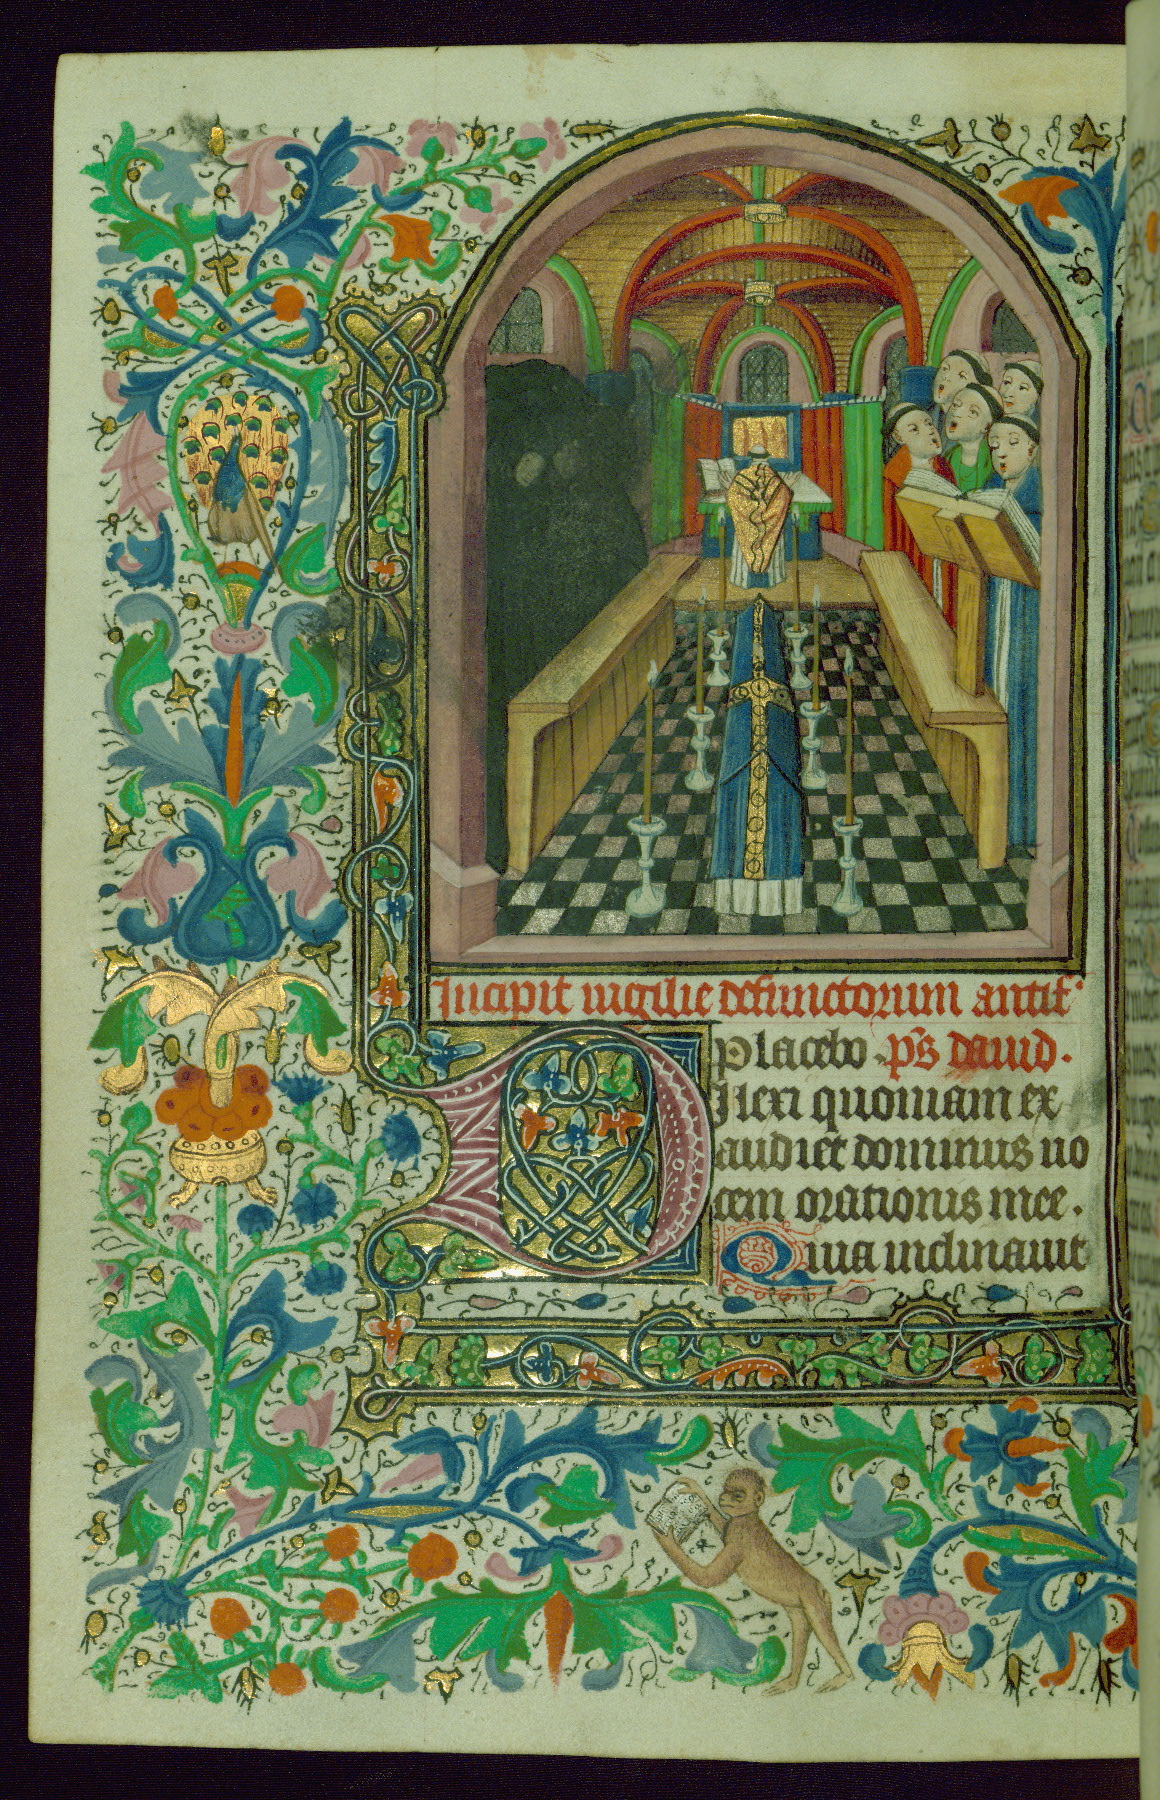 Incipit uigilie defunctorum antif
Placebo. ps dauid.
Dilexi quoniam ex
audiet dominus uo
cem orationis mee.
Quia inclinauit